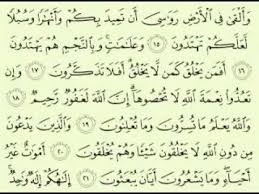 وَأَلْقَىٰ فِي الْأَرْضِ رَوَاسِيَ أَن تَمِيدَ بِكُمْ وَأَنْهَارًا وَسُبُلًا
لَّعَلَّكُمْ تَهْتَدُونَ ١٥ وَعَلَامَاتٍ ۚ وَبِالنَّجْمِ هُمْ يَهْتَدُونَ
١٦ أَفَمَن يَخْلُقُ كَمَن لَّا يَخْلُقُ ۗ أَفَلَا تَذَكَّرُونَ ١٧ وَإِن
تَعُدُّوا نِعْمَةَ اللَّهِ لَا تُحْصُوهَا ۗ إِنَّ اللَّهَ لَغَفُورٌ رَّحِيمٌ ١٨
وَاللَّهُ يَعْلَمُ مَا تُسِرُّونَ وَمَا تُعْلِنُونَ ١٩ وَالَّذِينَ يَدْعُونَ
مِن دُونِ اللَّهِ لَا يَخْلُقُونَ شَيْئًا وَهُمْ يُخْلَقُونَ ٢٠ أَمْوَاتٌ غَيْرُ
أَحْيَاءٍ ۖ وَمَا يَشْعُرُونَ أَيَّانَ يُبْعَثُونَ ٢١ إِلَٰهُكُمْ إِلَٰهٌ